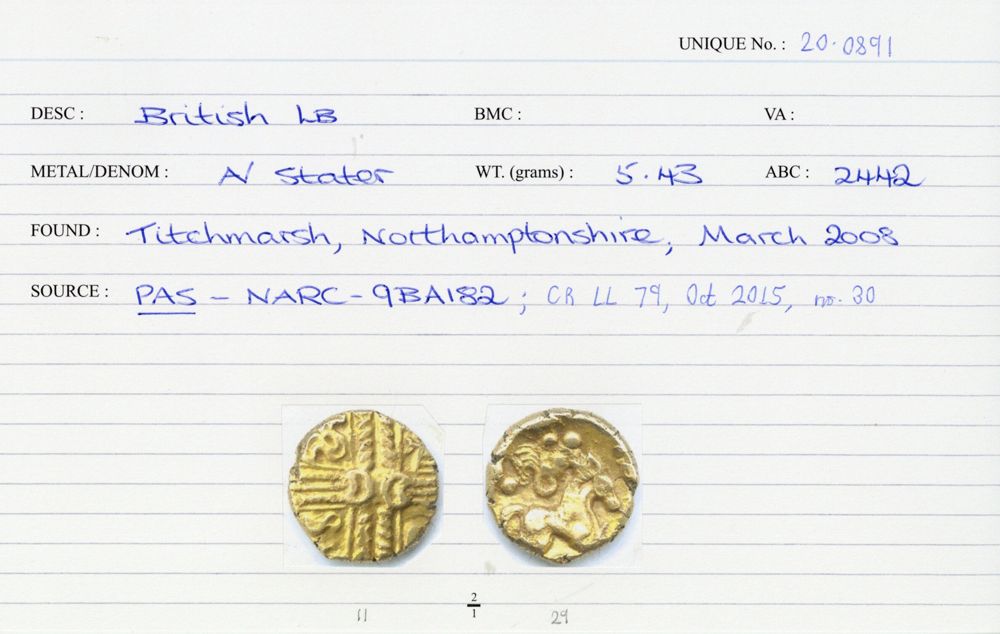 UNIQUE No. : 20.0891
DESC : British LB BMC : VA :
METAL/DENOM : A/ Stater WT. (grams) : 5.43 ABC : 2442
FOUND : Titchmarsh, Northamptonshire, March 2008
SOURCE : PAS - NARC-9BA182 ; CR LL 79, Oct 2015, no. 30
2
1
11 29